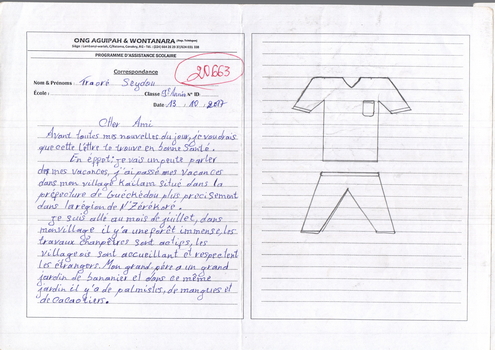 ONG AGUIPAH & WONTANARA
PROGRAMME D'ASSISTANCE SCOLAIRE
Correspondance
20663
Nom & Prénoms : Traoré Seydou
École : Classe 9e Année N° ID:
Date : 13 . 10 . 2017
Cher Ami
Avant toutes mes nouvelles du jour, je voudrais
que cette lettre te trouve en bonne santé.
En effet: je vais un peute parler
des mes vacances, j'ai passé mes vacances
dans mon village Kailain situé dans la
préfecture de Guéckédou plus precisement
dans la région de N'Zérékoré.
Je suis allé au mois de juillet, dans
mon village il y'a une forêt immense, les
travaux champêtres sont actifs, les
villageois sont accueillant et respectent
les étrangers. Mon grand-père a un grand
jardin de bananier et dans ce même
jardin il y'a de palmistes, de mangues et
de cacaotiers.